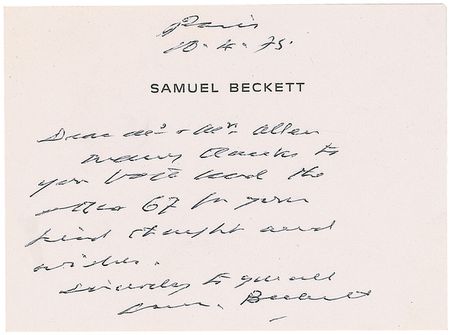 Paris
10.4.75.
SAMUEL BECKETT
Dear Mr & Mrs Allen
Many thanks to
you both and the
other 67 for your
kind thought and
wishes.
Sincerely to you all
Sam. Beckett